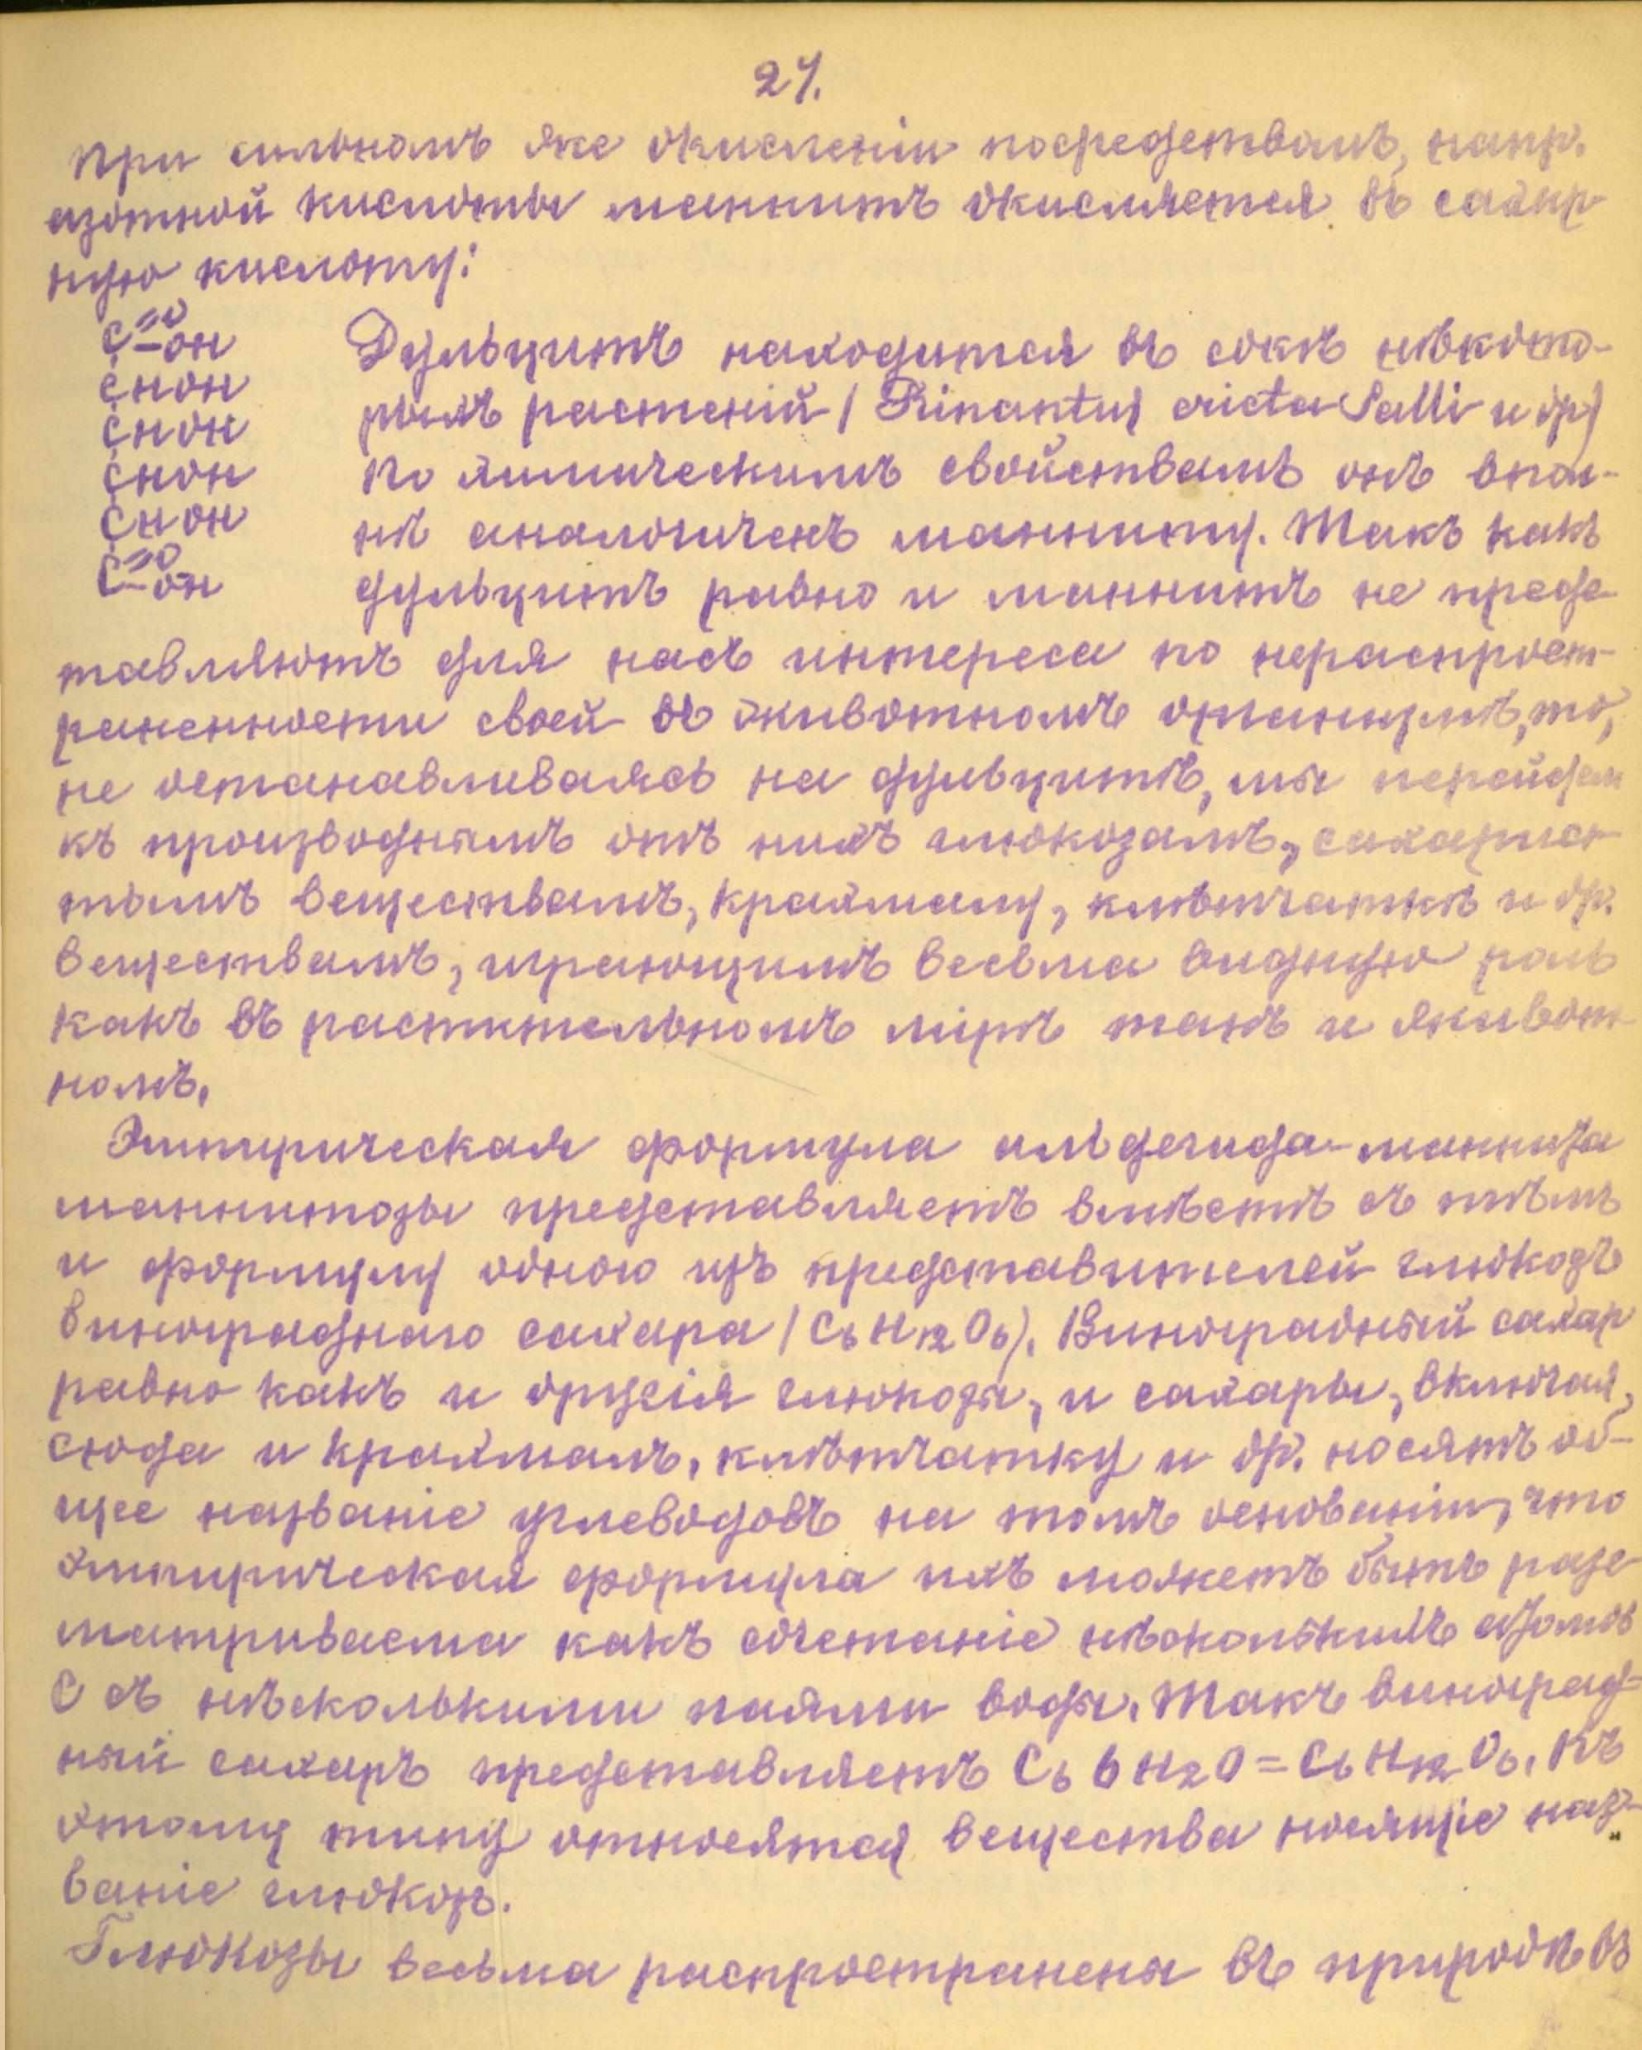 27.
При сильномъ же окисленіи посредствомъ, напр.
азотной кислоты маннитъ окисляется въ сахар-
ную кислоту:
C=O
-OH
CHOH
CHOH
CHOH
CHOH
C=O
-OH
Дульцитъ находится въ сокѣ нѣкото-
рыхъ растеній (Rinantus cricta Salli и др)
По химическимъ свойствамъ онъ впол-
нѣ аналогиченъ манниту. Такъ какъ
дульцитъ равно и маннитъ не предс-
тавляютъ для насъ интереса по нераспрост-
раненности своей въ животномъ организмѣ, то,
не останавливаясь на дульцитѣ, мы перейдем
къ производнымъ отъ нихъ глюкозамъ, сахарис-
тымъ веществамъ, крахмалу, клѣтчаткѣ и др.
веществамъ, играющимъ весьма видную роль
какъ въ растительномъ мірѣ такъ и живот-
номъ.
Эмпирическая формула альдегида-маннита
маннитозы представляетъ вмѣстѣ съ тѣмъ
и формулу одною изъ представителей глюкозъ
винограднаго сахара (C6H12O6). Виноградный сахар
равно какъ и другія глюкозы, и сахары, включая,
сюда и крахмалъ, клѣтчатку и др. носятъ об-
щее названіе углеводовъ на томъ основаніи, что
эмпирическая формула ихъ можетъ быть разс-
матриваема какъ сочетаніе нѣсколькихъ атомовъ
C съ нѣсколькими паями воды. Такъ виноград-
ный сахаръ представляетъ C6 6H2O = C6H12O6. Къ
этому типу относятся вещества носящіе наз-
ваніе глюкозъ.
Глюкозы весьма распространены въ природѣ въ